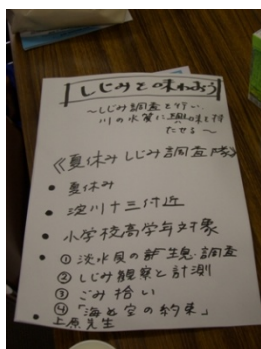 しじみを味わおう
〜しじみ調査を行い、
川の水質に興味を持
たせる〜
《夏休みしじみ調査隊》
• 夏休み
• 淀川十三付近
• 小学校高学年対象
• ①淡水貝の生息調査
②しじみ観察と計測
③ごみ拾い
④「海と空の約束」
• 上原先生